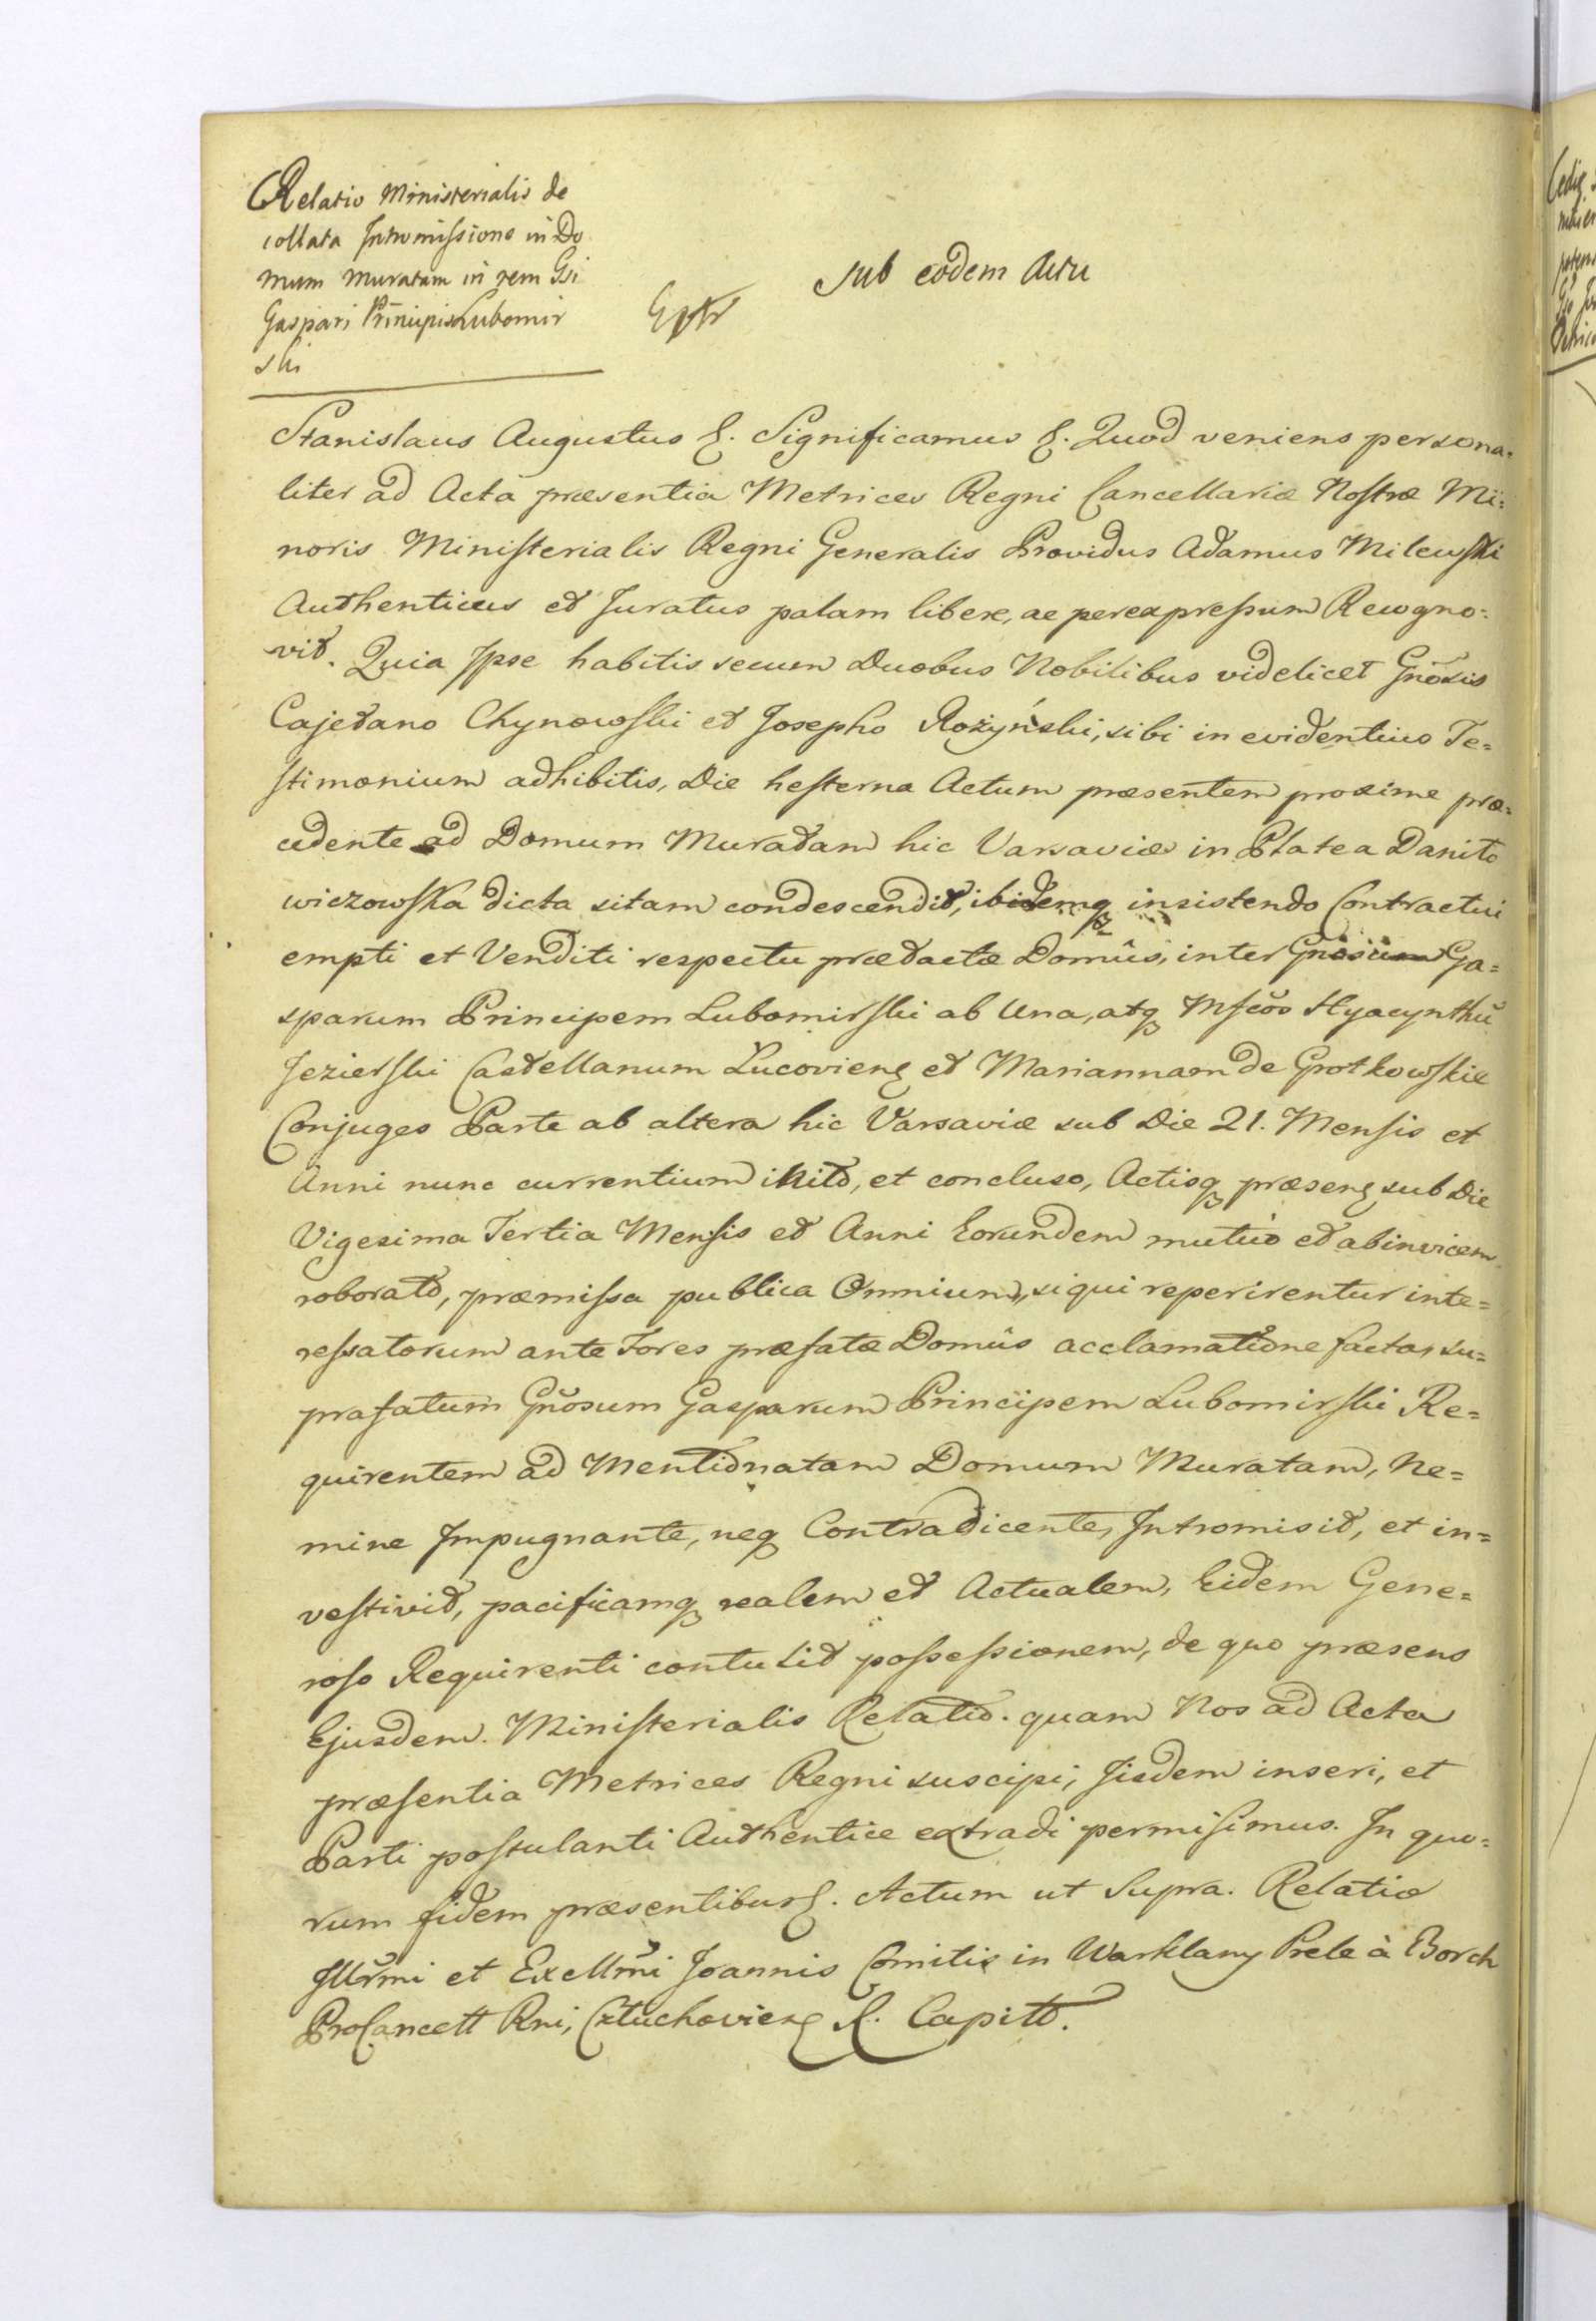 Relatio Ministerialis de
collata Intromissione in Do
mum muratam in rem Gsi
Gaspari Principis Lubomir
ski
Sub eodem Actu
Extr
Stanislaus Augustus &. Significamus &. Quod veniens persona=
liter ad Acta præsentia Metrices Regni Cancellariæ Nostræ Mi=
noris Ministerialis Regni Generalis Providus Adamus Milewski
Authenticus et Juratus palam libere, ac per expressum Recogno=
vit. Quia Ipse habitis secum Duobus Nobilibus videlicet Gnosis
Cajetano Chynowski et Josepho Rożyński, sibi in evidentius Te=
stimonium adhibitis, Die hesterna Actum præsentem proxime præ=
cedente ad Domum Muratam hic Varsaviæ in Platea Daniło
wiczowska dicta sitam condescendit, ibidemq insistendo Contractui
empti et Venditi respectu prædactæ Domûs, inter Gnosum Ga=
sparum Principem Lubomirski ab Una, atq Mfcos Hyacynthũ
Jezierski Castellanum Łucovien et Mariannam de Grotkowskie
Conjuges Parte ab altera hic Varsaviæ sub Die 21. Mensis et
Anni nunc currentium inito, et concluso, Actisq præsen sub Die
Vigesima Tertia Mensis et Anni Eorundem mutuò et abinvicem
roborato, præmissa publica Omnium, si qui reperirentur inte=
ressatorum ante Fores præfatæ Domûs acclamatione facta, su=
prafatum Gnosum Gasparum Principem Lubomirski Re=
quirentem ad Mentionatam Domum Muratam, Ne=
mine Impugnante, neq Contradicente, Intromisit, et in=
vestivit, pacificamq realem et Actualem, Eidem Gene=
roso Requirenti contulit possessionem, de quo præsens
Ejusdem Ministerialis Relatio. quam Nos ad Acta
præsentia Metrices Regni suscipi, Iisdem inseri, et
Parti postulanti Authentice extradi permisimus. In quo=
rum fidem præsentibus &. Actum ut Supra. Relatio
Illrmi et Excllmi Joannis Comitis in Warklany Prele à Borch
ProCancell Rni, Człuchovien &. Capitt.